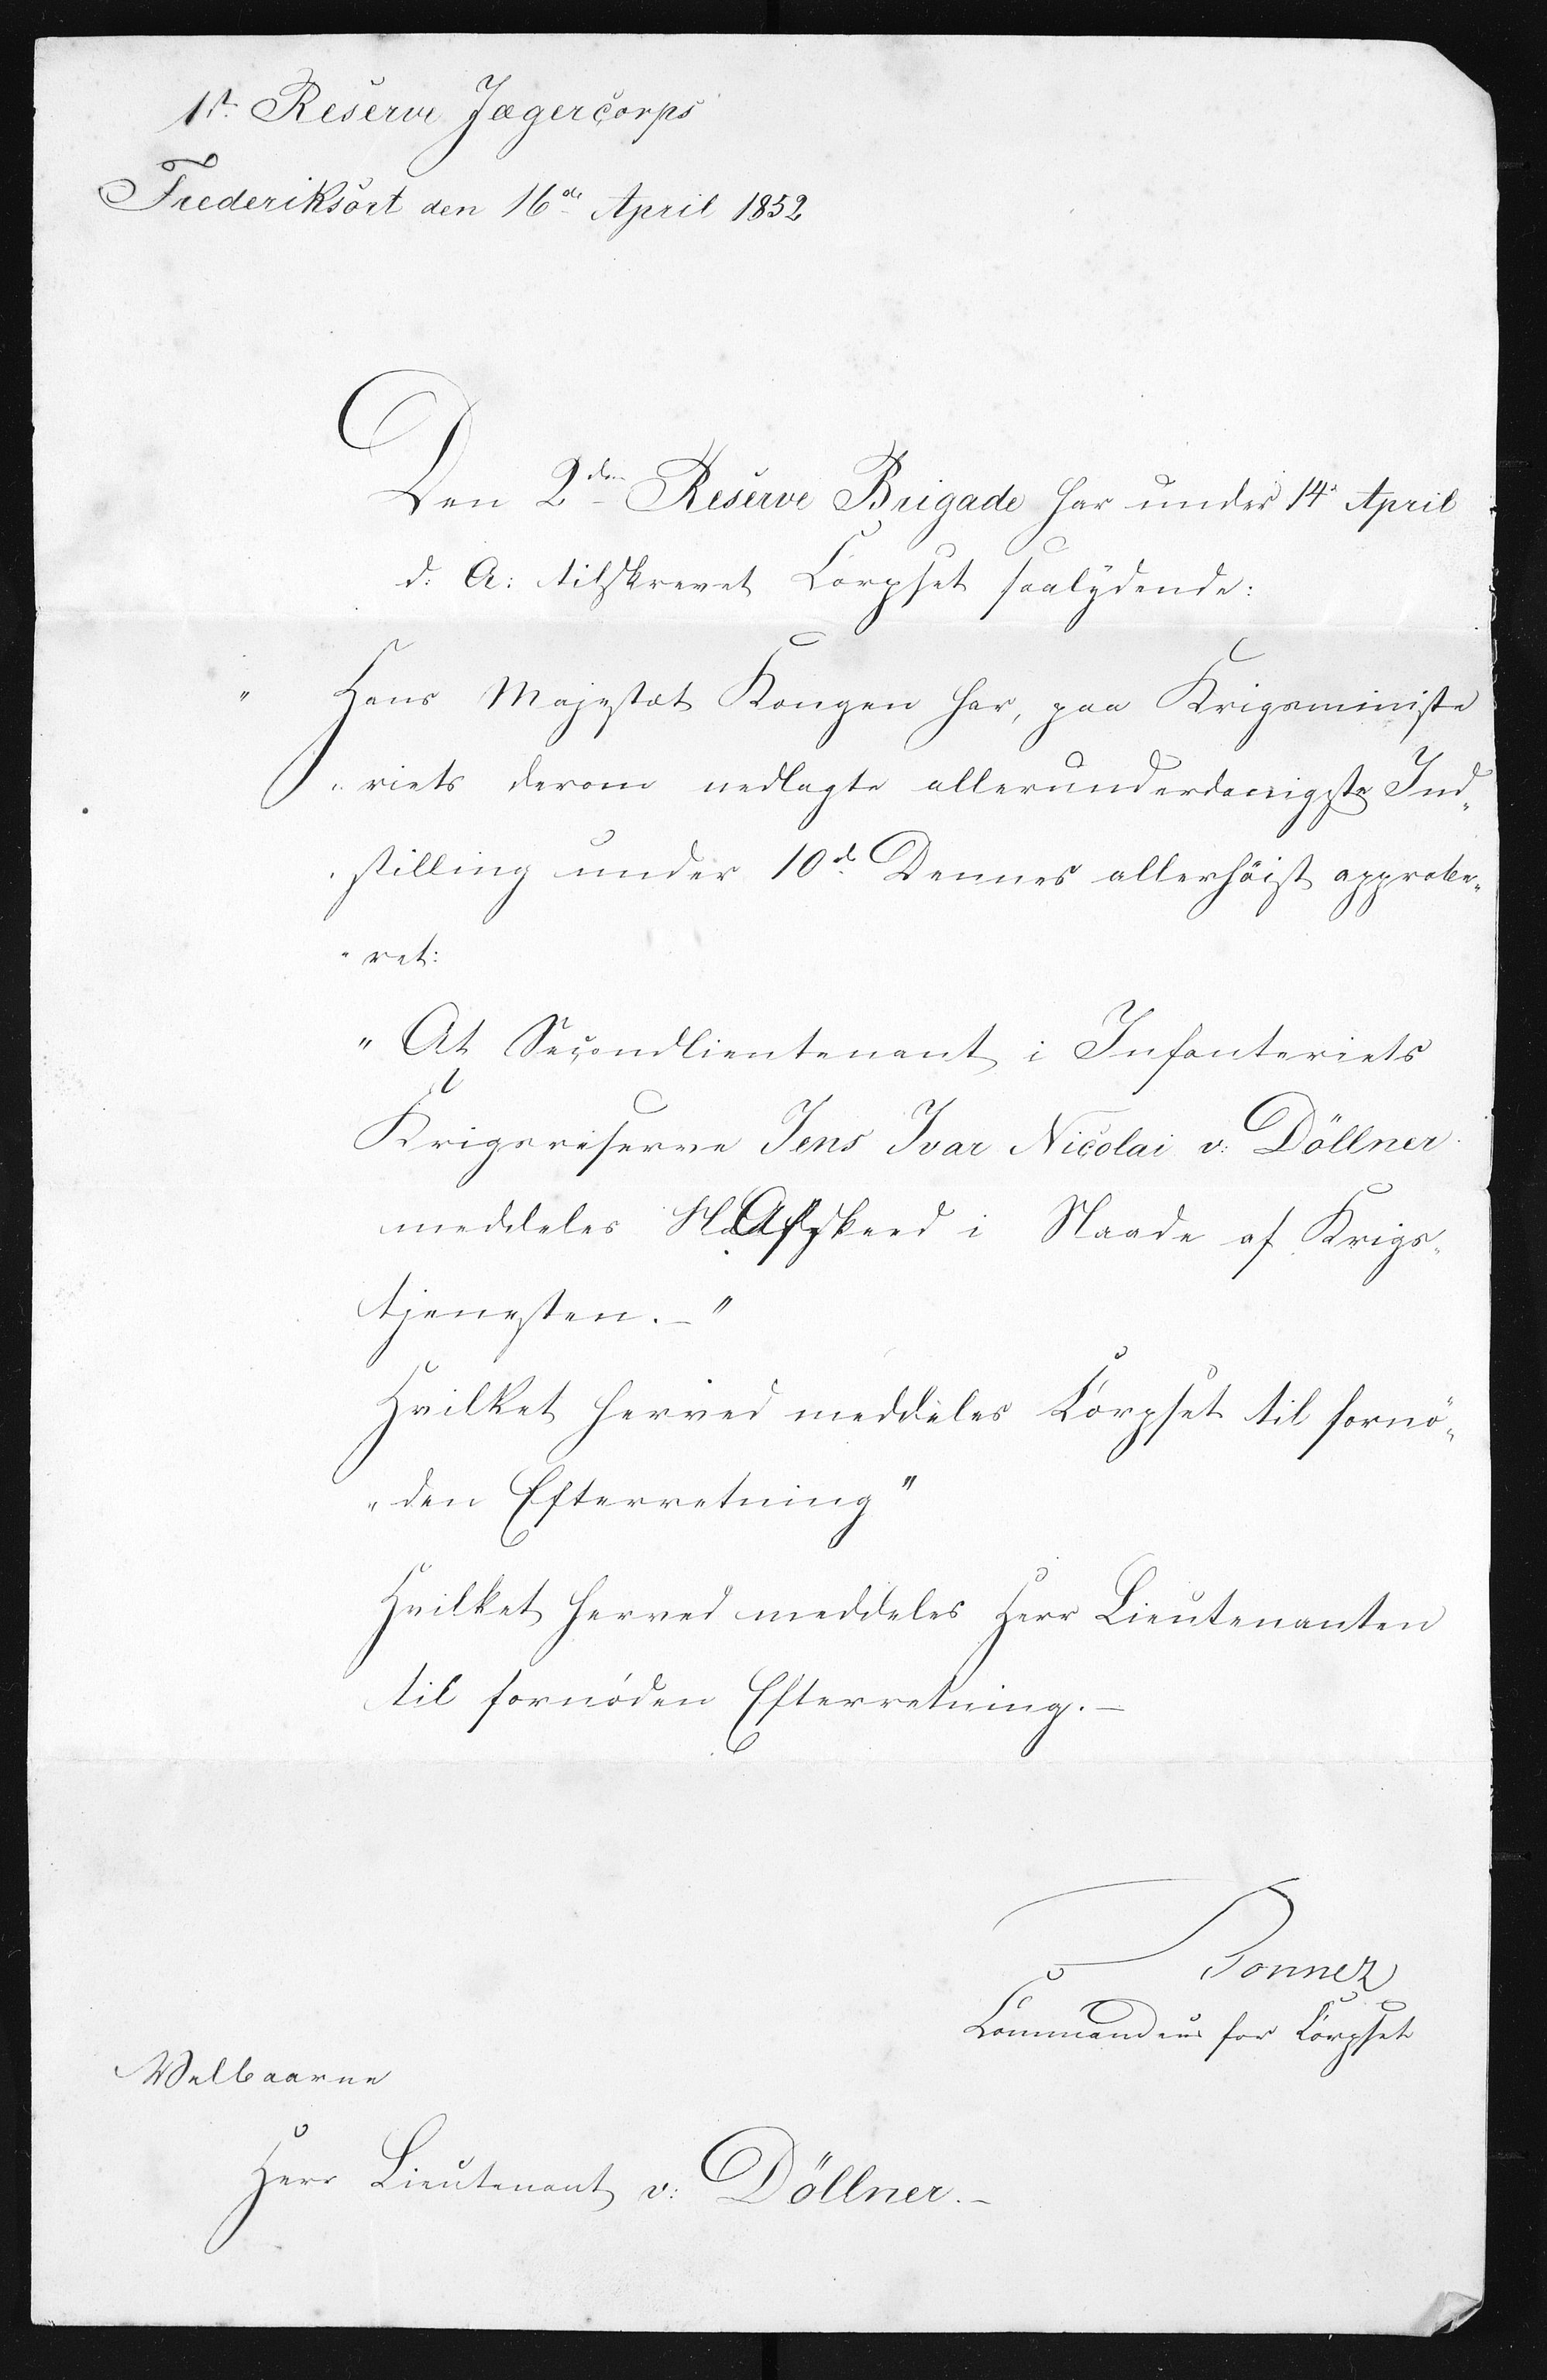 1st Reserve Jægercorps
Frederiksort den 16de April 1852
Den 2den Reserve Brigade har under 14d April
d: A: tilskrevet Corpset saalydende:
" Hans Majestæt Kongen har, paa Krigsministe
" riets derom nedlagte allerunderdanigste Ind„
" stilling under 10d Dennes allerhöist approbe„
" ret:
" At Secondlieutenant i Infanteriets
Krigsreserve Jens Ivar Nicolai v: Döllner
meddeles Afskeed i Naade af Krigs„
tjenesten.—"
Hvilket herved meddeles Corpset til fornö„
„den Efterretning"
Hvilket herved meddeles Herr Lieutenanten
til fornöden Efterretning.—
Commandeur for Corpset
Velbaarne
Herr Lieutenant v: Döllner.—